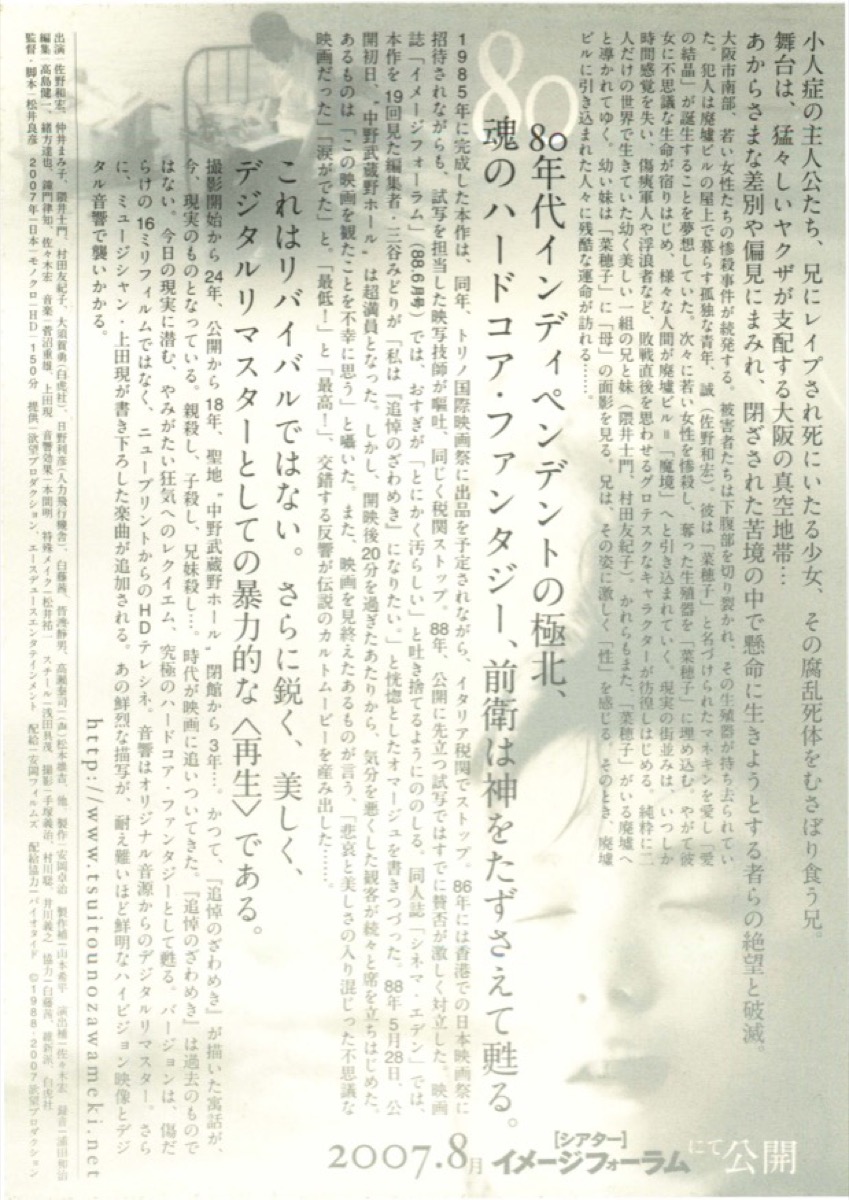 小人症の主人公たち、兄にレイプされ死にいたる少女、その腐乱死体をむさぼり食う兄。
舞台は、猛々しいヤクザが支配する大阪の真空地帯…
あからさまな差別や偏見にまみれ、閉ざされた苦境の中で懸命に生きようとする者らの絶望と破滅。
大阪市南部、若い女性たちの惨殺事件が続発する。被害者たちは下腹部を切り裂かれ、その生殖器が持ち去られてい
た。犯人は廃墟ビルの屋上で暮らす孤独な青年、誠（佐野和宏）。彼は「菜穂子」と名づけられたマネキンを愛し「愛
の結晶」が誕生することを夢想していた。次々に若い女性を惨殺し、奪った生殖器を「菜穂子」に埋め込む。やがて彼
女に不思議な生命が宿りはじめ、様々な人間が廃墟ビル＝「魔境」へと引き込まれていく。現実の街並みは、いつしか
時間感覚を失い、傷痍軍人や浮浪者など、敗戦直後を思わせるグロテスクなキャラクターが彷徨しはじめる。純粋に二
人だけの世界で生きていた幼く美しい一組の兄と妹（隈井士門、村田友紀子）。かれらもまた、「菜穂子」がいる廃墟へ
と導かれてゆく。幼い妹は「菜穂子」に「母」の面影を見る。兄は、その姿に激しく「性」を感じる。そのとき、廃墟
ビルに引き込まれた人々に残酷な運命が訪れる……。
80
80年代インディペンデントの極北、
魂のハードコア・ファンタジー、前衛は神をたずさえて甦る。
1985年に完成した本作は、同年、トリノ国際映画祭に出品を予定されながら、イタリア税関でストップ。86年には香港での日本映画祭に
招待されながらも、試写を担当した映写技師が嘔吐、同じく税関ストップ。88年、公開に先立つ試写ではすでに賛否が激しく対立した。映画
誌「イメージフォーラム」（88.6月号）では、おすぎが「とにかく汚らしい」と吐き捨てるようにののしる。同人誌「シネマ・エデン」では、
本作を19回見た編集者・三谷みどりが「私は『追悼のざわめき』になりたい。」と恍惚としたオマージュを書きつづった。88年5月28日、公
開初日、"中野武蔵野ホール"は超満員となった。しかし、開映後20分を過ぎたあたりから、気分を悪くした観客が続々と席を立ちはじめた。
あるものは「この映画を観たことを不幸に思う」と囁いた。また、映画を見終えたあるものが言う、「悲哀と美しさの入り混じった不思議な
映画だった」「涙がでた」と。「最低！」と「最高！」、交錯する反響が伝説のカルトムービーを産み出した……。
これはリバイバルではない。さらに鋭く、美しく、
デジタルリマスターとしての暴力的な〈再生〉である。
撮影開始から24年、公開から18年、聖地"中野武蔵野ホール"閉館から3年…。かつて、『追悼のざわめき』が描いた寓話が、
今、現実のものとなっている。親殺し、子殺し、兄妹殺し…。時代が映画に追いついてきた。『追悼のざわめき』は過去のもので
はない。今日の現実に潜む、やみがたい狂気へのレクイエム、究極のハードコア・ファンタジーとして甦る。バージョンは、傷だ
らけの16ミリフィルムではなく、ニュープリントからのHDテレシネ。音響はオリジナル音源からのデジタルリマスター。さら
に、ミュージシャン・上田現が書き下ろした楽曲が追加される。あの鮮烈な描写が、耐え難いほど鮮明なハイビジョン映像とデジ
タル音響で襲いかかる。
http://www.tsuitounozawameki.net
出演｜佐野和宏、仲井まみ子、隈井士門、村田友紀子、大須賀勇（白虎社）、日野利彦（人力飛行機舎）、白藤茜、皆渡静男、高瀬泰司、（偽）松本雄吉、他　製作｜安岡卓治　製作補｜山本希平　演出補｜佐々木宏　録音｜浦田和治
編集｜高島健一、緒方達也、鏑門律知、佐々木宏　音楽｜菅沼重雄、上田現　音響効果｜本間明　特殊メイク｜松井祐一　スチール｜浅田具茂　撮影｜手塚義治、村川聡、井川義之　協力｜白藤茜、維新派、白虎社
監督・脚本｜松井良彦　2007年｜日本｜モノクロ｜HD｜150分　提供｜欲望プロダクション、エースデュースエンタテインメント　配給｜安岡フィルムズ　配給協力｜バイオタイド　©1988-2007欲望プロダクション
2007.8月 [シアター]イメージフォーラムにて公開